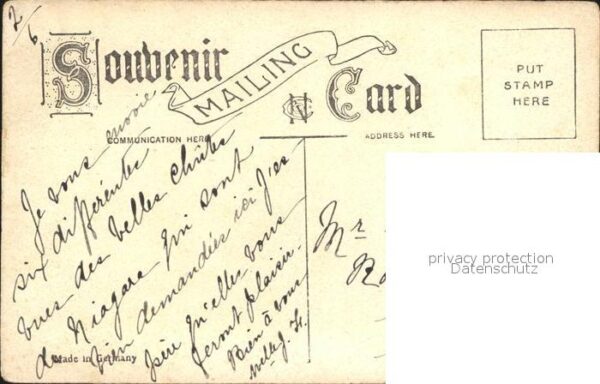 2/6
Souvenir
MAILING
Card
COMMUNICATION HERE
ADDRESS HERE.
PUT
STAMP
HERE
Je vous envoie
six différentes
vues des belles chûtes
du Niagara qui sont
bien demandées ici J'es
père qu'elles vous
feront plaisir.
Bien à vous
Made in Germany
Mr
privacy protection
Datenschutz